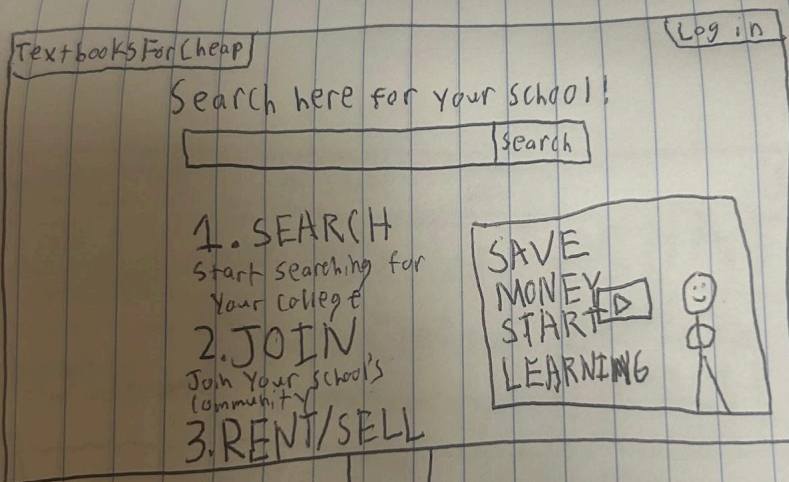 TextbooksForCheap
Log in
Search here for your school!
Search
1. SEARCH
Start searching for
your college
2. JOIN
Join Your school's
community
3. RENT/SELL
SAVE
MONEY
START
LEARNING